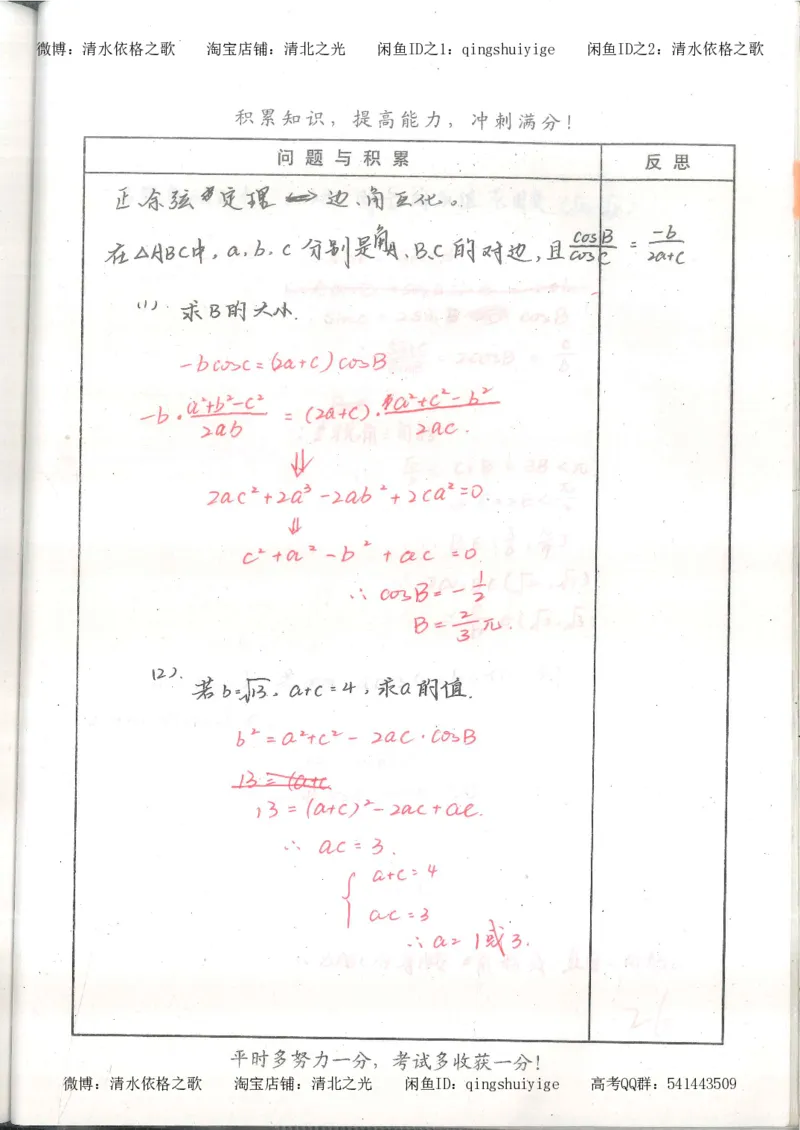 微博：清水依格之歌 淘宝店铺：清北之光 闲鱼ID之1：qingshuiyige 闲鱼ID之2：清水依格之歌
积累知识，提高能力，冲刺满分！
问题与积累 反思
正余弦定理 <=> 边、角互化。
在△ABC中，a，b，c 分别是角A、B、C 的对边，且 cosB/cosC = -b/(2a+c)
(1) 求B的大小.
-bcosC=(2a+c)cosB
-b·(a²+b²-c²)/2ab = (2a+c)·(a²+c²-b²)/2ac.
⇓
2ac²+2a³-2ab²+2ca²=0.
⇓
c²+a²-b²+ac=0
∴ cosB=-1/2
B=2/3π.
(2). 若b=√13，a+c=4，求a的值.
b²=a²+c²-2ac·cosB
13=(a+c
13=(a+c)²-2ac+ac.
∴ ac=3.
{ a+c=4
ac=3
∴a=1或3.
平时多努力一分，考试多收获一分！
微博：清水依格之歌 淘宝店铺：清北之光 闲鱼ID：qingshuiyige 高考QQ群：541443509